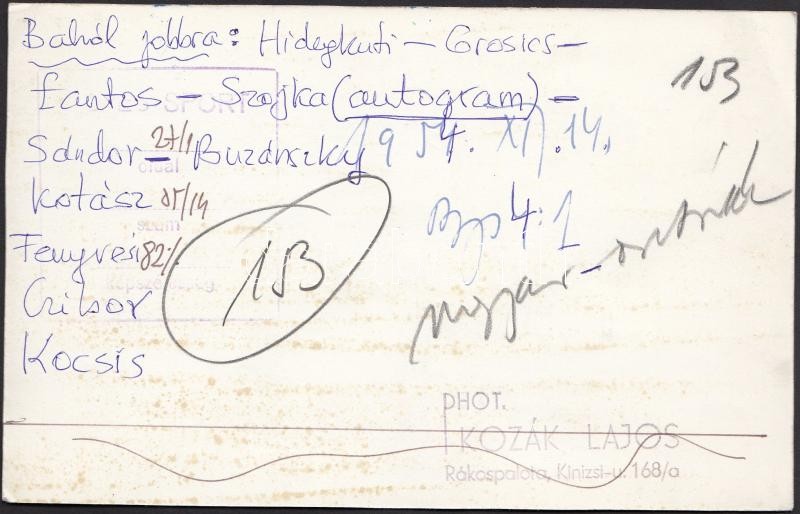 Balról jobbra: Hidegkuti – Grosics –
153
Fantos – Szojka (autogram) –
SPORT
Sándor – 27/1 Buzánszky
1954. XI. 14.
oldal
Kotász 05/14
szám
Bp 4:1
Fenyvesi 82%
153
magyar – osztrák
Czibor
Kocsis
PHOT.
KOZÁK LAJOS
Rákospalota, Kinizsi-u. 168/a